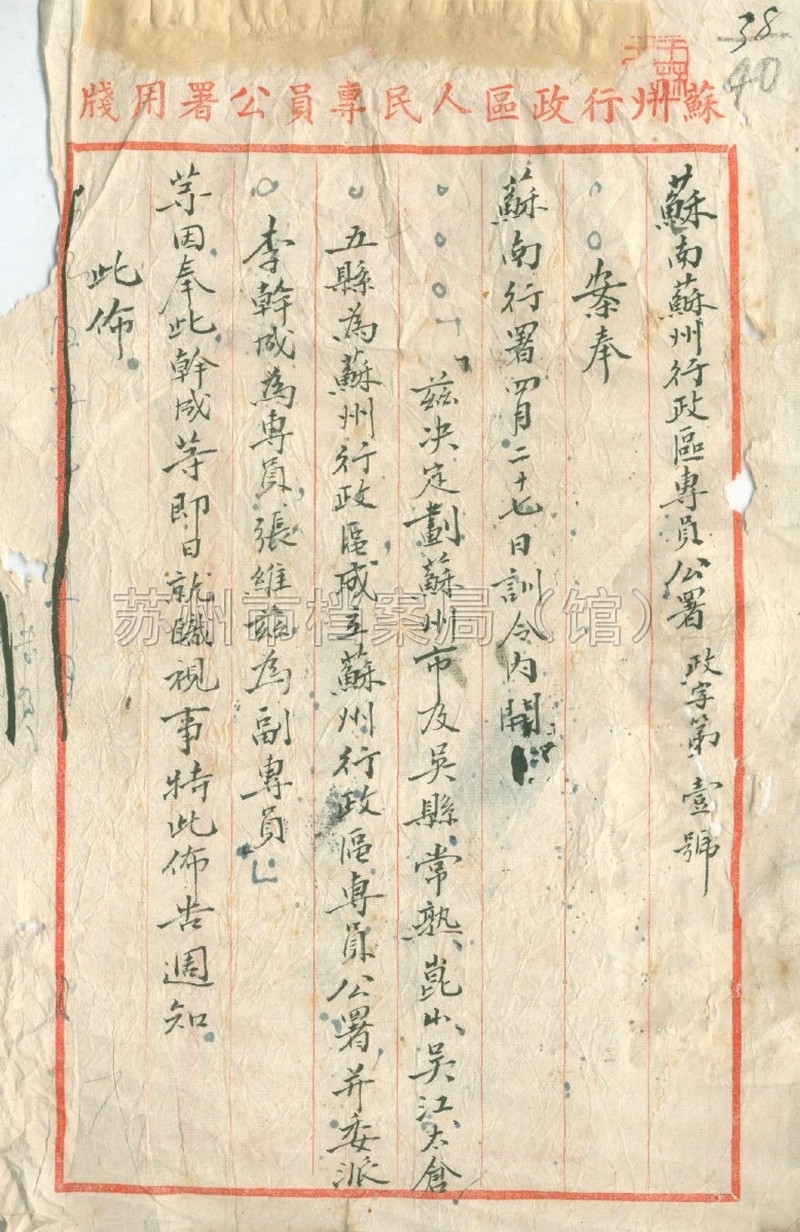 38
40
蘇州行政區人民專員公署用牋
蘇南蘇州行政區專員公署 政字第壹號
案奉
蘇南行署四月二十七日訓令內開:
「茲決定劃蘇州市及吳縣、常熟、崑山、吳江、太倉
五縣為蘇州行政區,成立蘇州行政區專員公署,并委派
李幹成為專員,張維茲為副專員」
等因奉此,幹成等即日就職視事特此佈告週知
此佈
苏州市档案局（馆）